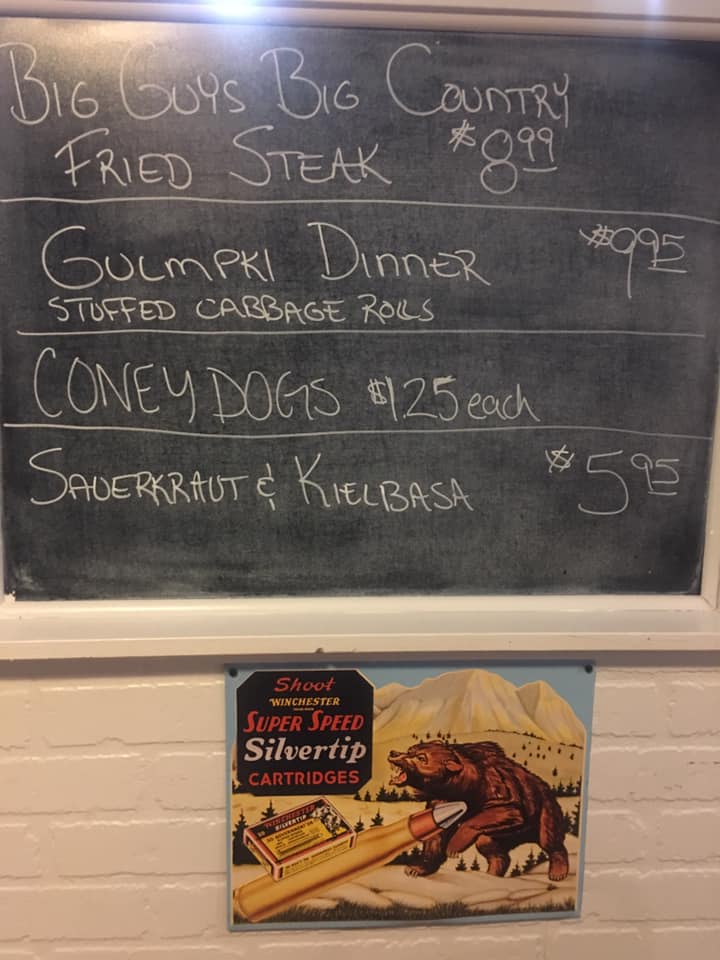 BIG GUYS BIG COUNTRY
FRIED STEAK $8.99
GULMPKI DINNER $9.95
STUFFED CABBAGE ROLLS
CONEY DOGS $1.25 each
SAUERKRAUT & KIELBASA $5.95
Shoot
WINCHESTER
SUPER SPEED
Silvertip
CARTRIDGES
WINCHESTER
SILVERTIP